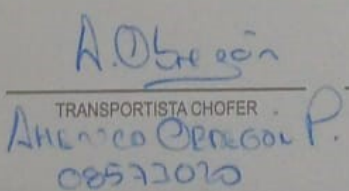 A. Obregón
TRANSPORTISTA CHOFER
Americo Obregon P.
08573020